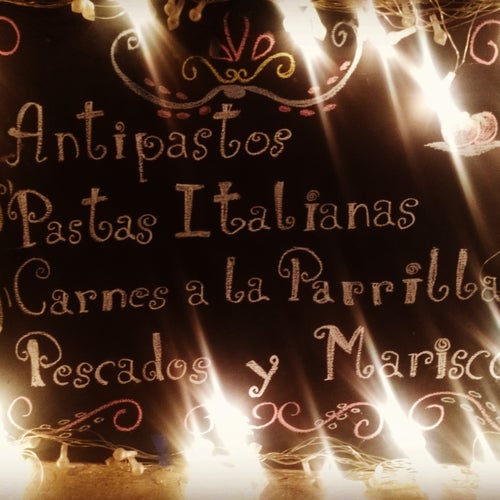 Antipastos
Pastas Italianas
Carnes a la Parrilla
Pescados y Marisco